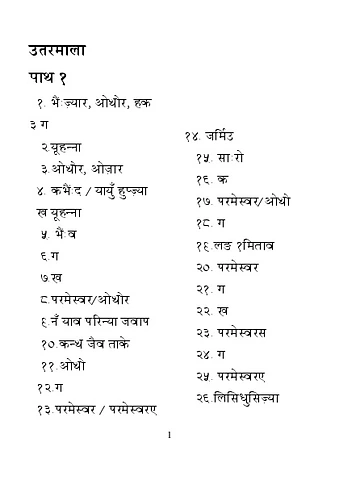 उतरमाला
पाथ १
१. भैंःज्यार, ओथोर, हक
३ ग
२.यूहन्ना
३.ओथोर, ओज़ार
४. कभैंःद / यायुँ हुप्ज़्या
ख यूहन्ना
५. भैंःव
६.ग
७.ख
८.परमेस्वर/ओथोर
९.नँ याव परिन्या जवाप
१०.कन्थ जैव ताके
११.ओथो
१२.ग
१३.परमेस्वर / परमेस्वरए
१४. जर्मिउ
१५. साःरो
१६. क
१७. परमेस्वर/ओथो
१८. ग
१९.लङ १मिताव
२०. परमेस्वर
२१. ग
२२. ख
२३. परमेस्वरस
२४. ग
२५. परमेस्वरए
२६.लिसिधुसिज़्या
1